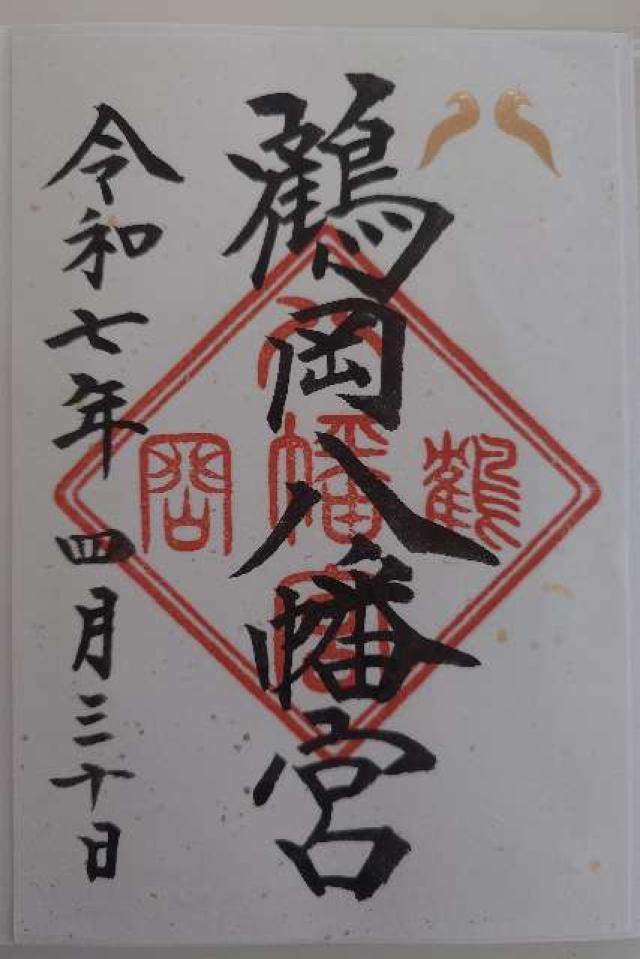 鶴岡八幡宮
鶴
八幡宮
岡
令和七年 四月三十日